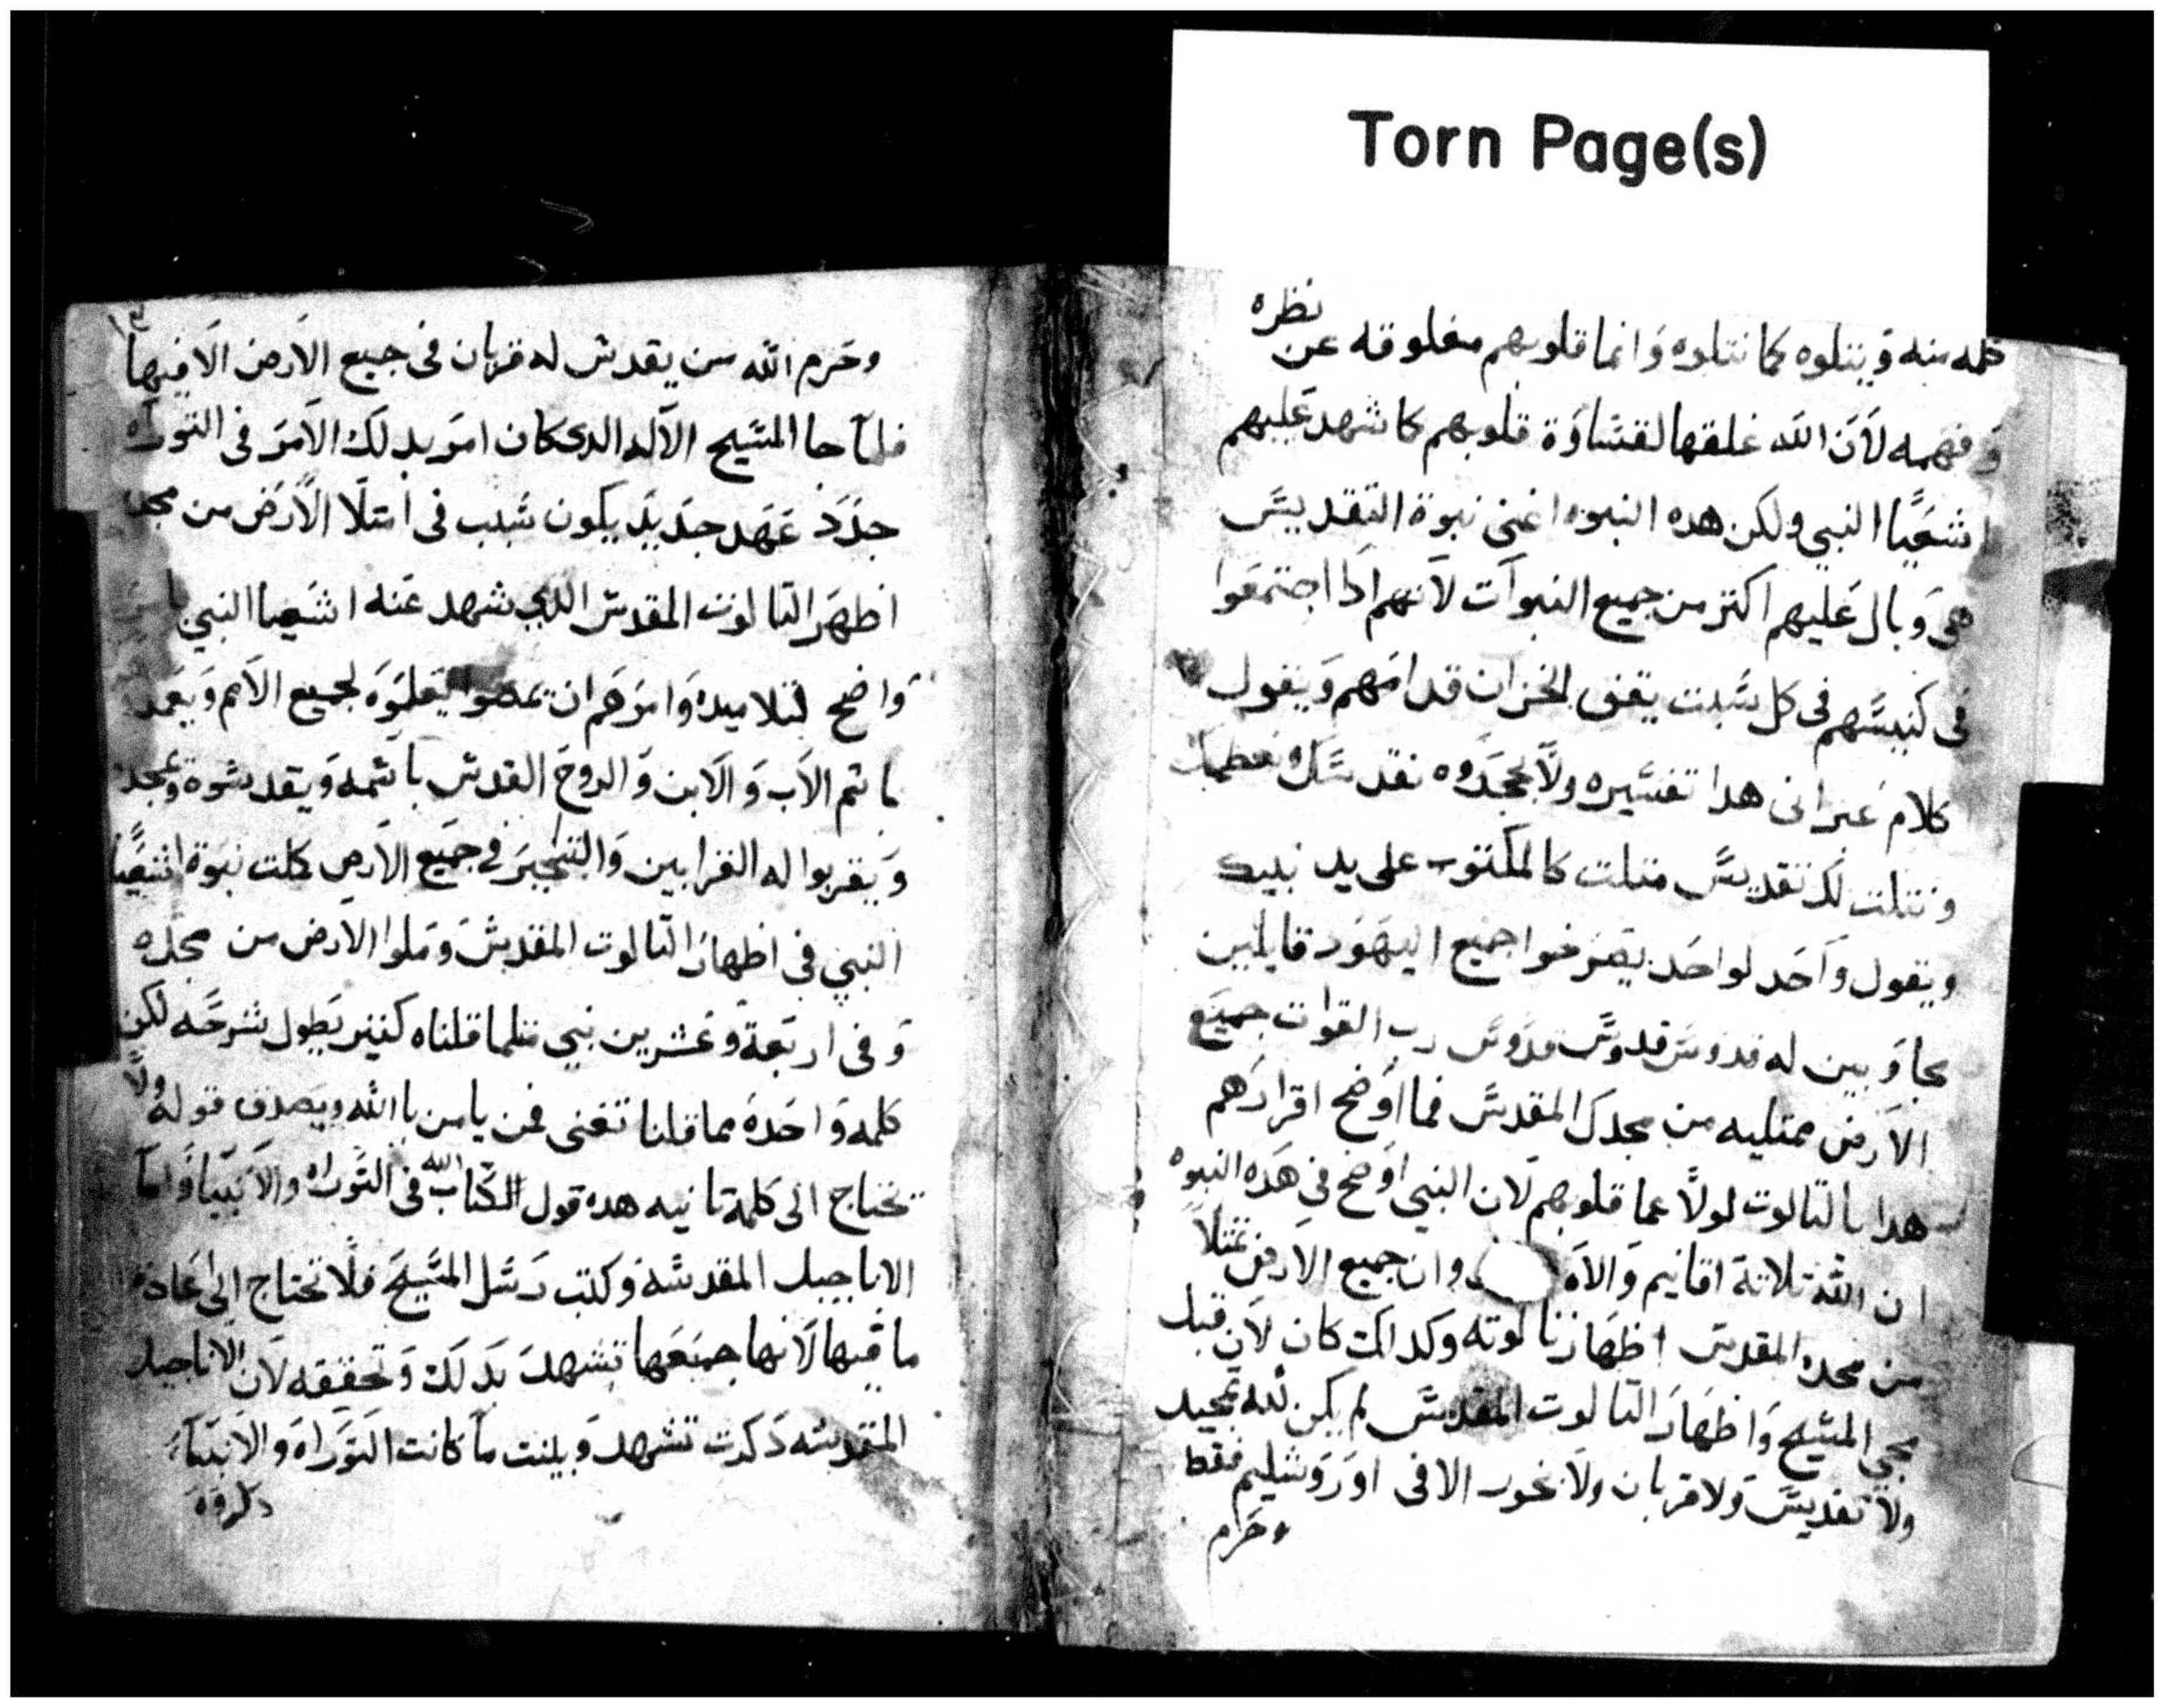 Torn Page(s)
كلمه منه وَيتلوه كما نتلوه وَانما قلوبهم مغلوقه عن نظره
وَفهمه لاَنَ الله غلقها لقسَاوَة قلوبهم كما شهد عَليهم
اشعَيَا النبي ولكن هده النبوه اعني نبوة التقديسَ
هى وَبال عَليهم اكتر من جميع النبوآت لاَنهم ادا اجتمعَوا
فى كنيسَهم فى كل سَبت يقف الخزان قدامَهم وَيقول
كلامَ عَبرانى هدا تفسَيره ولاَ يجحَدَوه نقدسَك ونعظمك
ونتلت لك تقديسَ متلت كالمكتوب على يد نبيك
ويقول وَاحَد لواحَد يصَرخوا جميع اليهَوَد قايلين
بجاوَبين له قدوسَ قدوسَ قدوَسَ رب القوات جميَع
الاَرض ممتليه من مجدك المقدسَ فما اوَضح اقرارَهم
هدا بالتالوت لولاَ عما قلوبهم لاَن النبي اوَضح فى هَده النبوه
ان الله تلاتة اقانيم وَالاَه وان جميع الاَرض تمتلاَ
من مجده المقدس اظهَار تالوته وكدالك كان لاَن قبل
مجي المسَيح وَاظهَارَ التالوت المقدسَ لم يكن لله تمجيد
ولاَ تقديسَ وَلا قربان ولاَ بخور الا فى اوَرَوَشليم فقط
وحَرم
وحَرم الله من يقدس له قربان فى جميع الاَرض الاَ فيها
فلما جا المسَيح الاَله الدى كان امَر بدلك الاَمرَ فى التورَاه
جدَدَ عَهَد جدَيدَ يكون سَبب فى امتلاَ الاَرَض من مجده
اظهَر التالوت المقدس الدى شهد عَنه اشعَيا النبي
وَاضح لتلاميده وَامرَهَم ان يمضوا يَعلمَوَه لجميع الاَمم وَيعَمد
باسَم الاَب وَالاَبن وَالروَحَ القدس باسَمه وَيقدسَوه
وَيقربوا له القرابين وَالتبَخيَر فى جمَيَع الاَرض كملت نبَوَة اشعَيَا
النبي فى اظهارَ التالوت المقدسَ ومَلوا الاَرض من مجدَه
وَفى اربَعَة وعَشرين نبي متلما قلناه كتير يَطول شرحَه لكن
كلمه وَاحَدَه مما قلنا تغنى لمن يامن باالله ويَصدق قوله ولاَ
تحتاج الى كلمة تانيه هده قول الله فى التورَاه والاَنبيَا وَامآ
الاناجيل المقدسَه وَكتب رَسَل المسَيحَ فلاَ تحتاج الى عَادة
ما فيها لاَنها جمَيَعَها تشهدَ بدَلك وَتحققه لاَن الاناجيل
المقدسَه دَكرت تشهد وَبينت مآ كانت التوَرَاه وَالاَنبيَآ
دكروَه